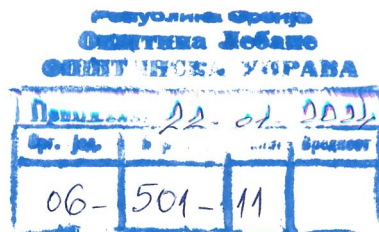 Република Србија
Општина Лебане
ОПШТИНСКА УПРАВА
22 - 01 -
Орг. јед. Вредност
06 - 501 - 11